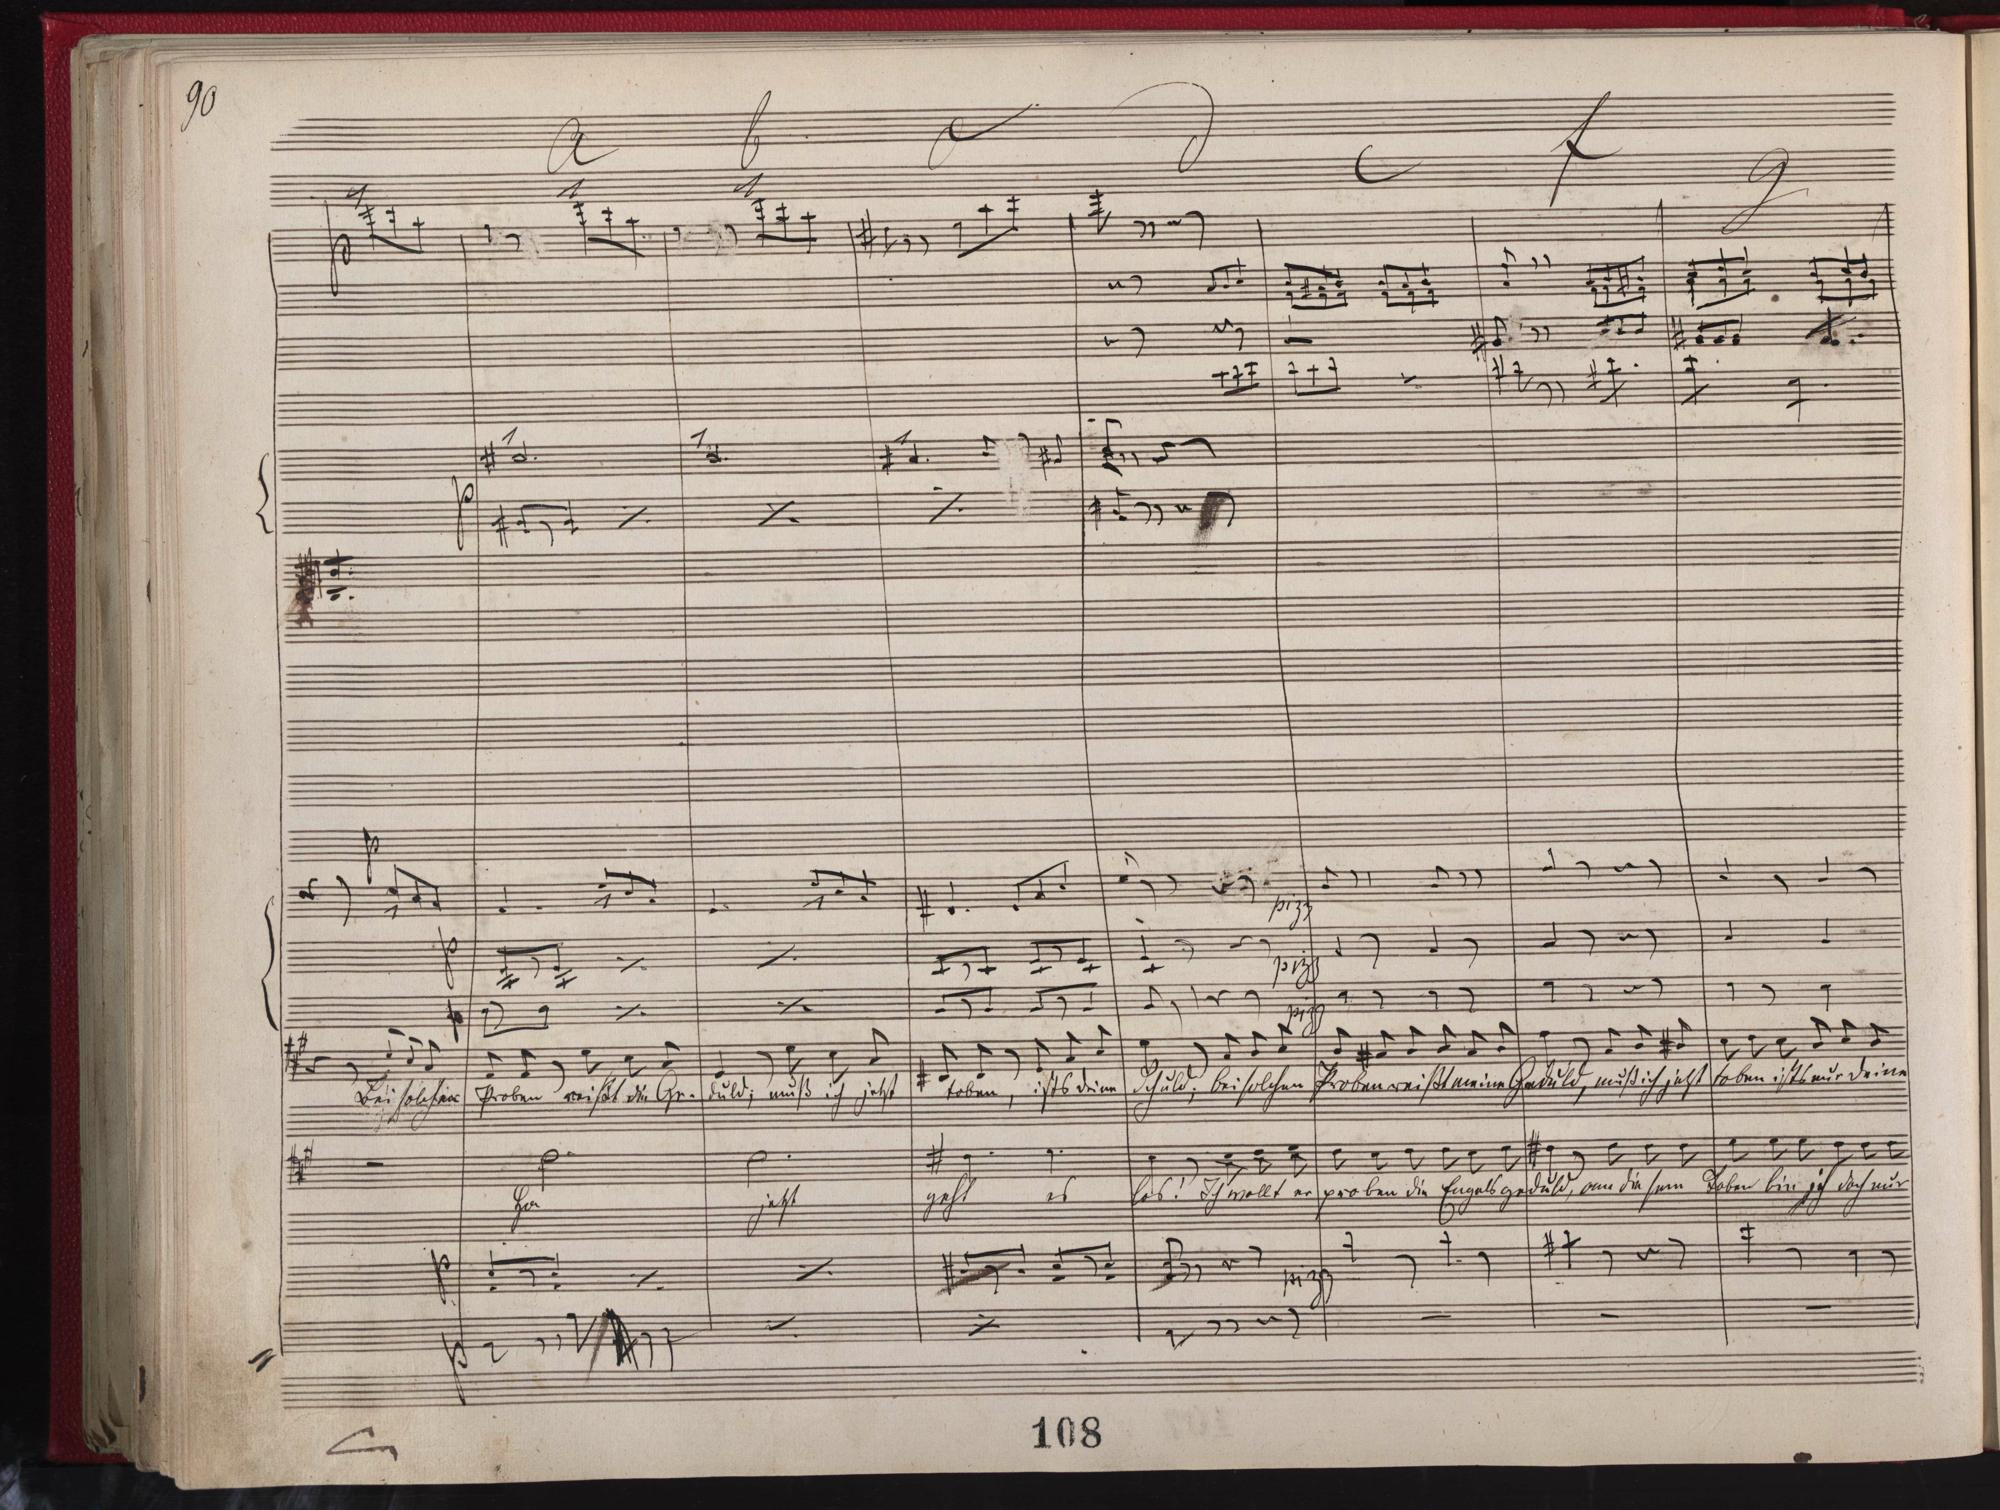 90
a b c d e f g
p
p
p
p
pizz
p
pizz
p
pizz
Bei solchen Proben reißt die Ge- duld; muß ich jetzt toben, ists deine Schuld; bei solchen Proben reißt meine Geduld, muß ich jetzt toben ists nur deine
Ha jetzt geht es los! Ich wollt er proben die Engelsgeduld, an diesem Toben bin ich doch nur
p
pizz
p
108